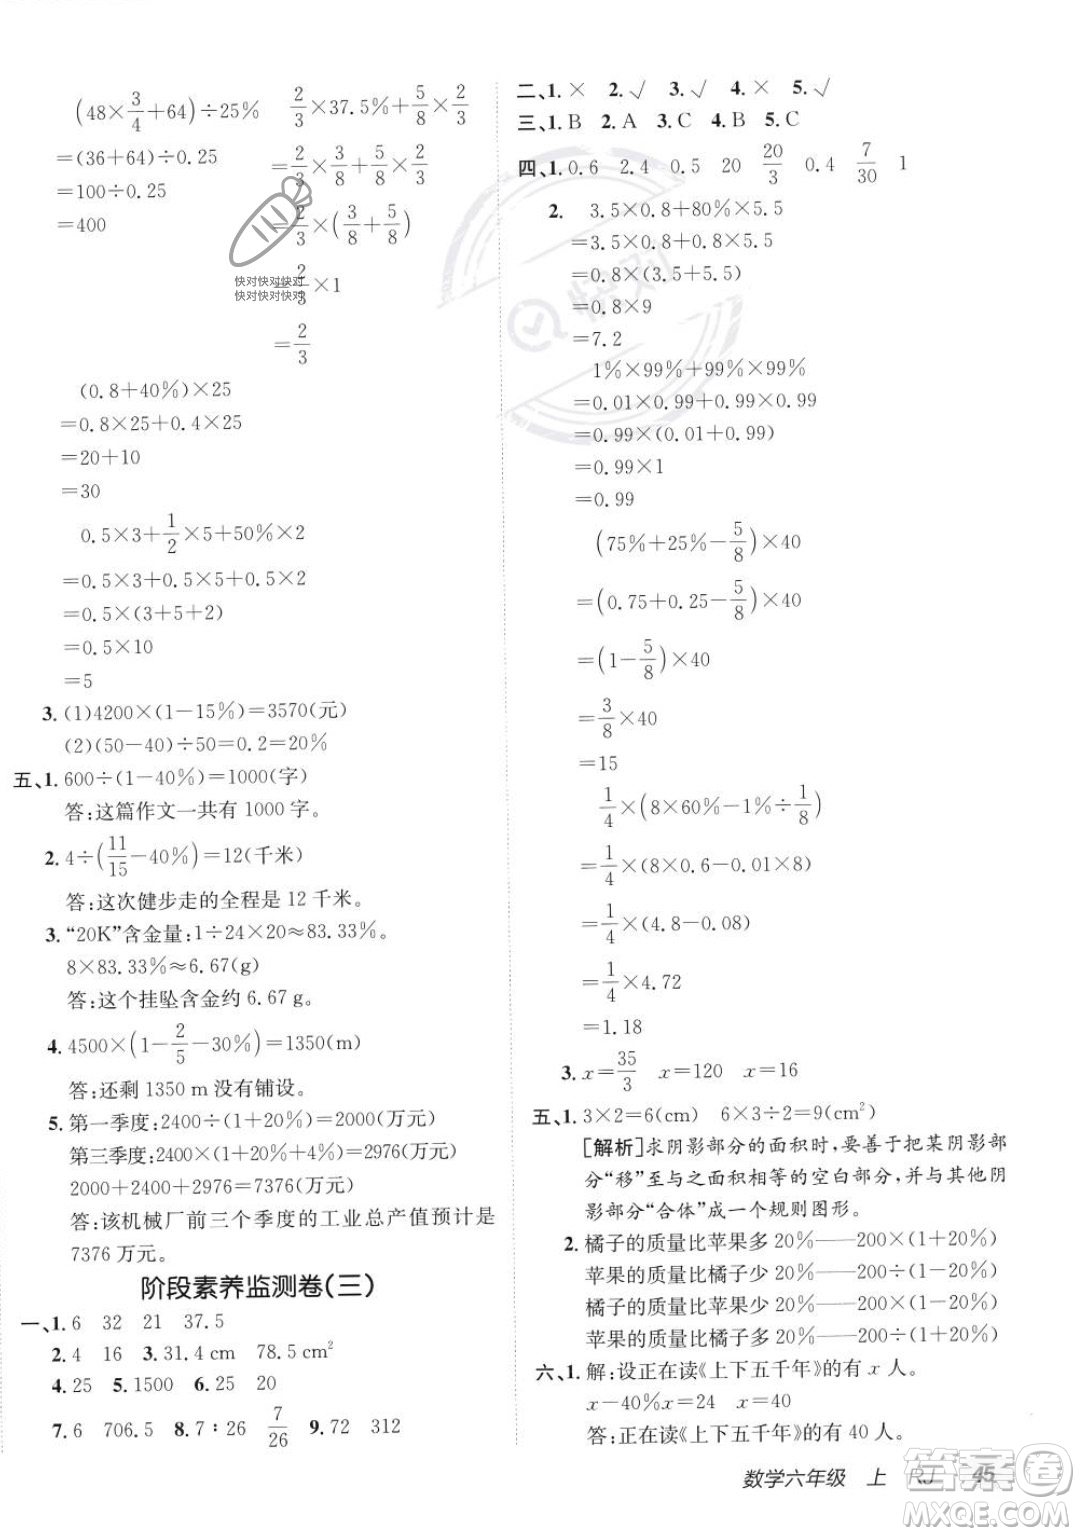 (48×3/4+64)÷25%
=(36+64)÷0.25
=100÷0.25
=400
2/3×37.5%+5/8×2/3
=2/3×3/8+5/8×2/3
=2/3×(3/8+5/8)
=2/3×1
=2/3
快对快对快对快对
快对快对快对快对
(0.8+40%)×25
=0.8×25+0.4×25
=20+10
=30
0.5×3+1/2×5+50%×2
=0.5×3+0.5×5+0.5×2
=0.5×(3+5+2)
=0.5×10
=5
3.(1)4200×(1-15%)=3570(元)
(2)(50-40)÷50=0.2=20%
五、1.600÷(1-40%)=1000(字)
答:这篇作文一共有 1000 字。
2.4÷(11/15-40%)=12(千米)
答:这次健步走的全程是 12 千米。
3.“20K”含金量:1÷24×20≈83.33%。
8×83.33%≈6.67(g)
答:这个挂坠含金约 6.67 g。
4.4500×(1-2/5-30%)=1350(m)
答:还剩 1350 m 没有铺设。
5.第一季度:2400÷(1+20%)=2000(万元)
第三季度:2400×(1+20%+4%)=2976(万元)
2000+2400+2976=7376(万元)
答:该机械厂前三个季度的工业总产值预计是
7376 万元。
阶段素养监测卷(三)
一、1.6 32 21 37.5
2.4 16 3.31.4 cm 78.5 cm²
4.25 5.1500 6.25 20
7.6 706.5 8.7∶26 7/26 9.72 312
二、1.× 2.√ 3.√ 4.× 5.√
三、1.B 2.A 3.C 4.B 5.C
四、1.0.6 2.4 0.5 20 20/3 0.4 7/30 1
2. 3.5×0.8+80%×5.5
=3.5×0.8+0.8×5.5
=0.8×(3.5+5.5)
=0.8×9
=7.2
1%×99%+99%×99%
=0.01×0.99+0.99×0.99
=0.99×(0.01+0.99)
=0.99×1
=0.99
(75%+25%-5/8)×40
=(0.75+0.25-5/8)×40
=(1-5/8)×40
=3/8×40
=15
1/4×(8×60%-1%÷1/8)
=1/4×(8×0.6-0.01×8)
=1/4×(4.8-0.08)
=1/4×4.72
=1.18
3.x=35/3 x=120 x=16
五、1.3×2=6(cm) 6×3÷2=9(cm²)
[解析]求阴影部分的面积时,要善于把某阴影部
分“移”至与之面积相等的空白部分,并与其他阴
影部分“合体”成一个规则图形。
2.橘子的质量比苹果多 20%——200×(1+20%)
苹果的质量比橘子少 20%——200÷(1-20%)
橘子的质量比苹果少 20%——200×(1-20%)
苹果的质量比橘子多 20%——200÷(1+20%)
六、1.解:设正在读《上下五千年》的有 x 人。
x-40%x=24 x=40
答:正在读《上下五千年》的有 40 人。
数学六年级 上 RJ 45
答案圈
MXQE.COM